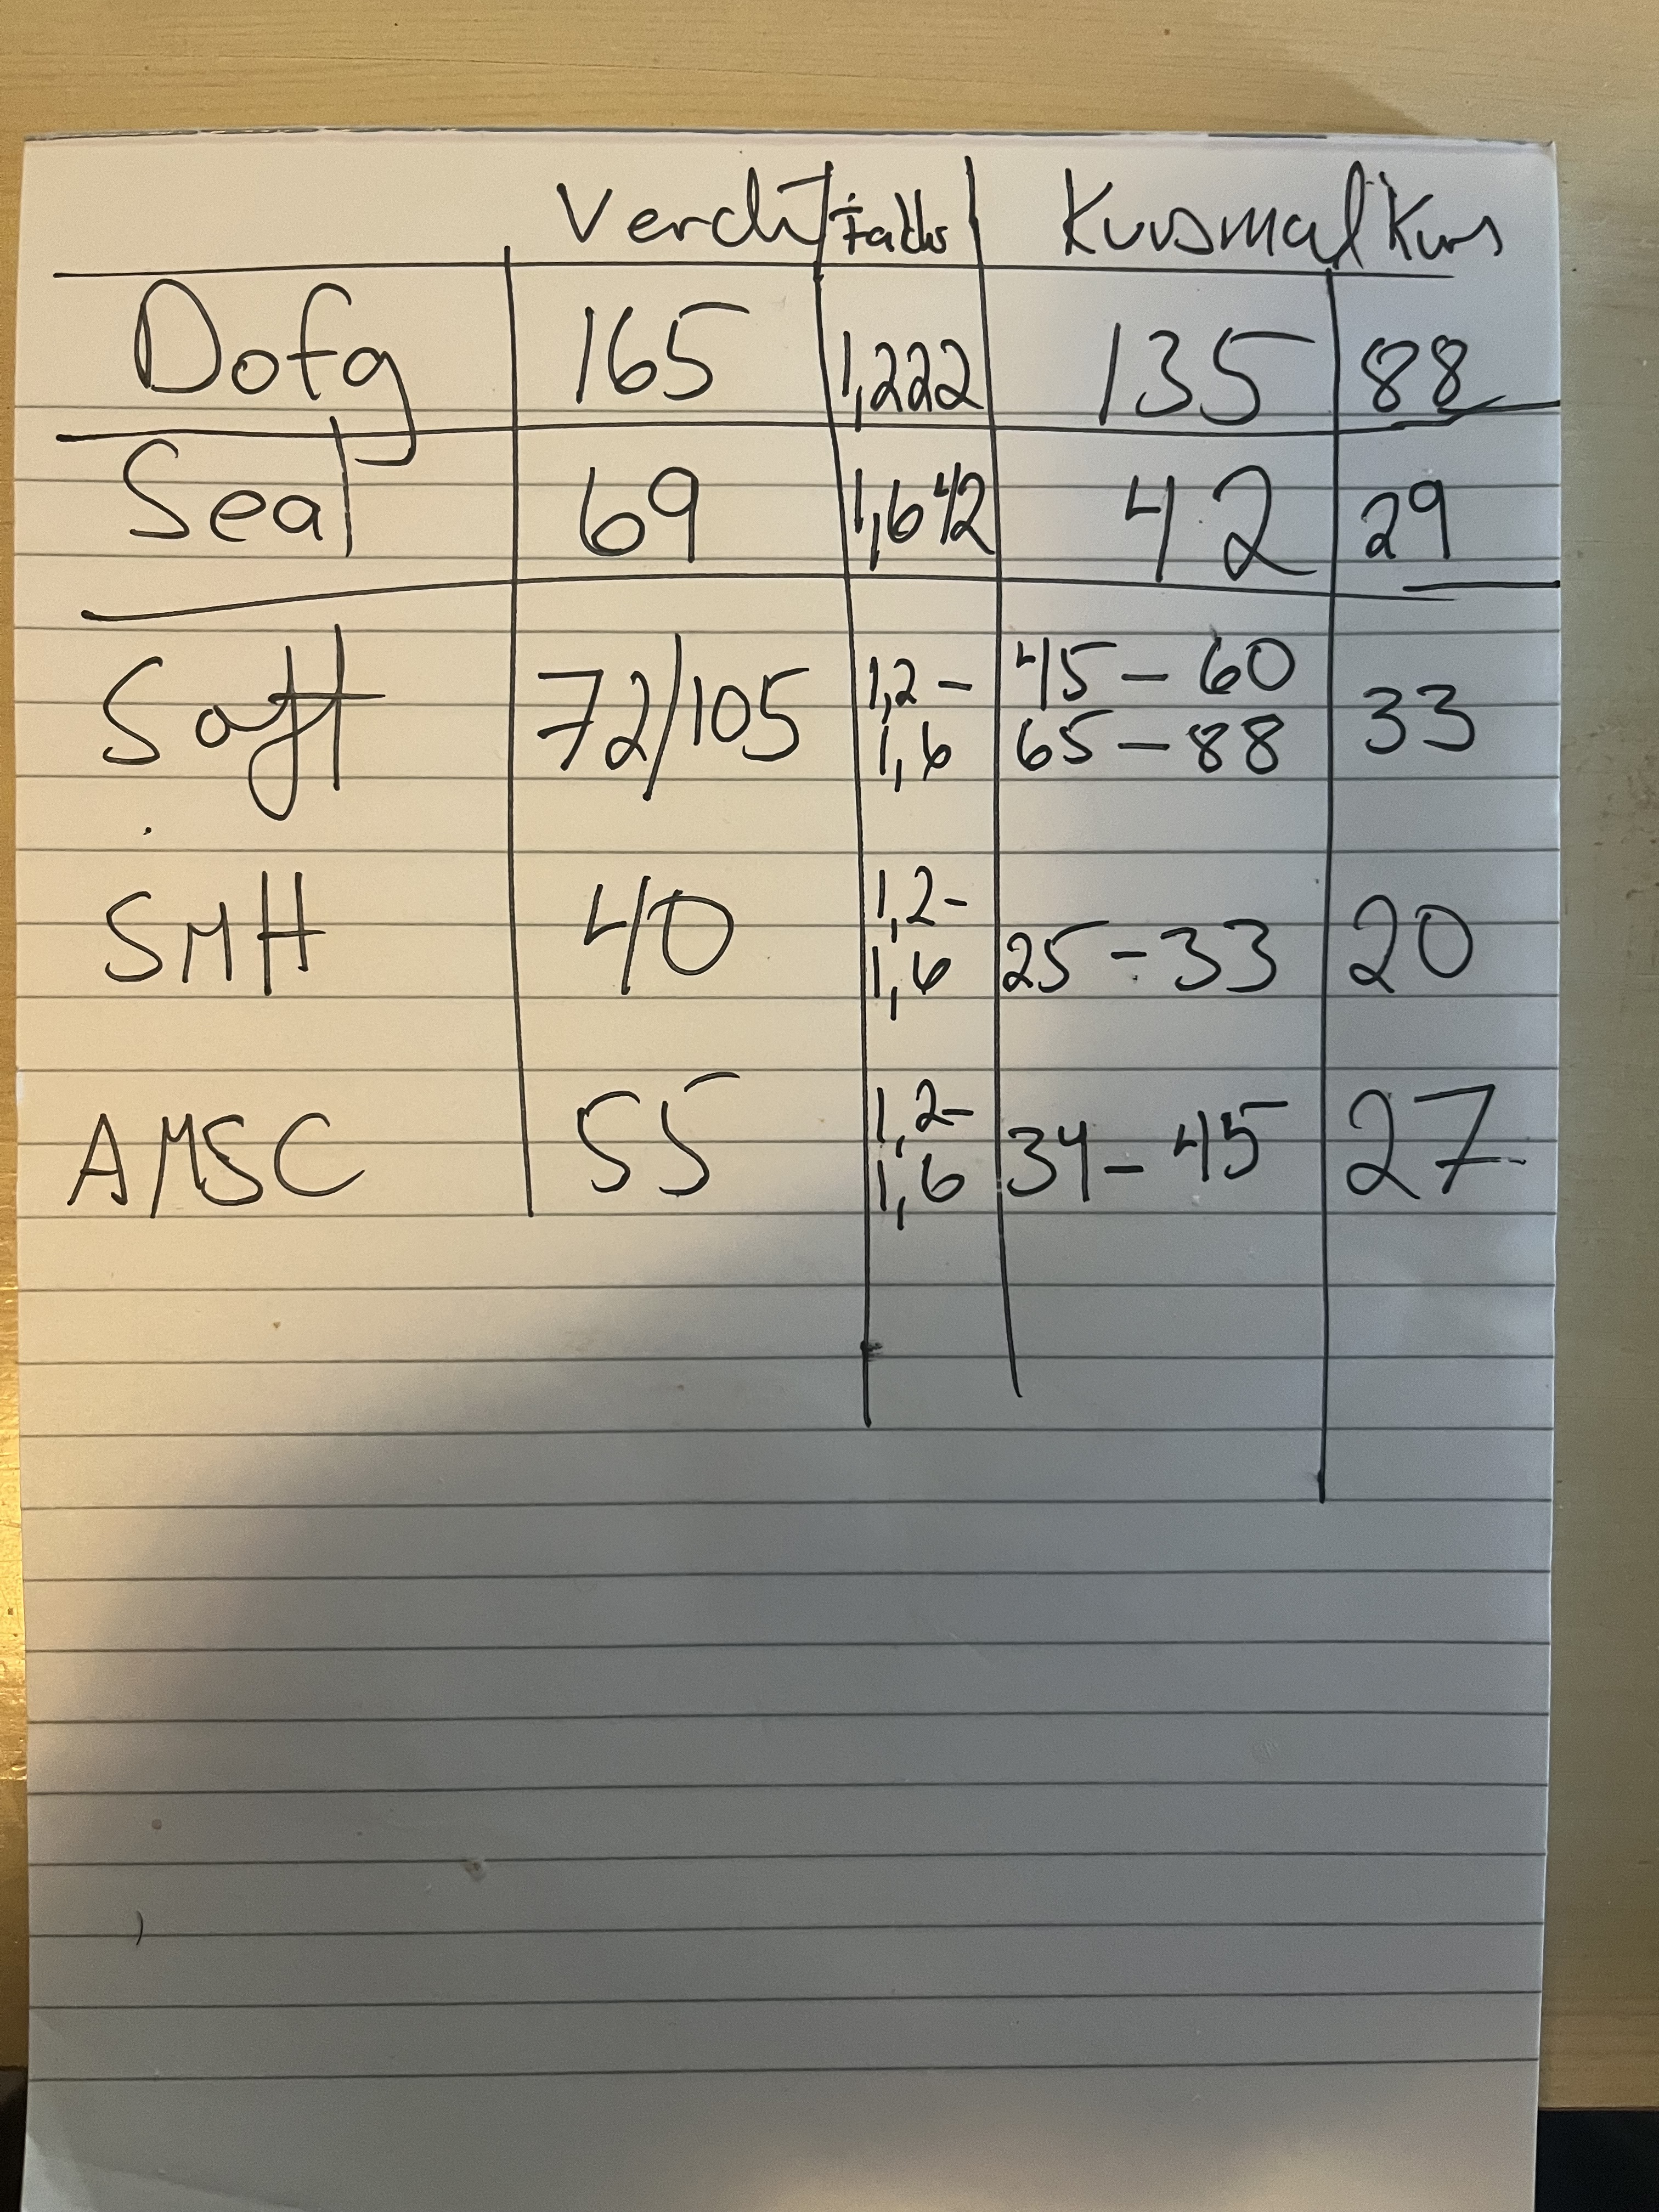 Verdi faktor Kursmal Kurs
Dofg 165 1,222 135 88
Seal 69 1,642 42 29
Soft 72/105 1,2- 45-60 33
1,6 65-88
SMH 40 1,2- 25-33 20
1,6
AMSC 55 1,2- 34-45 27
1,6